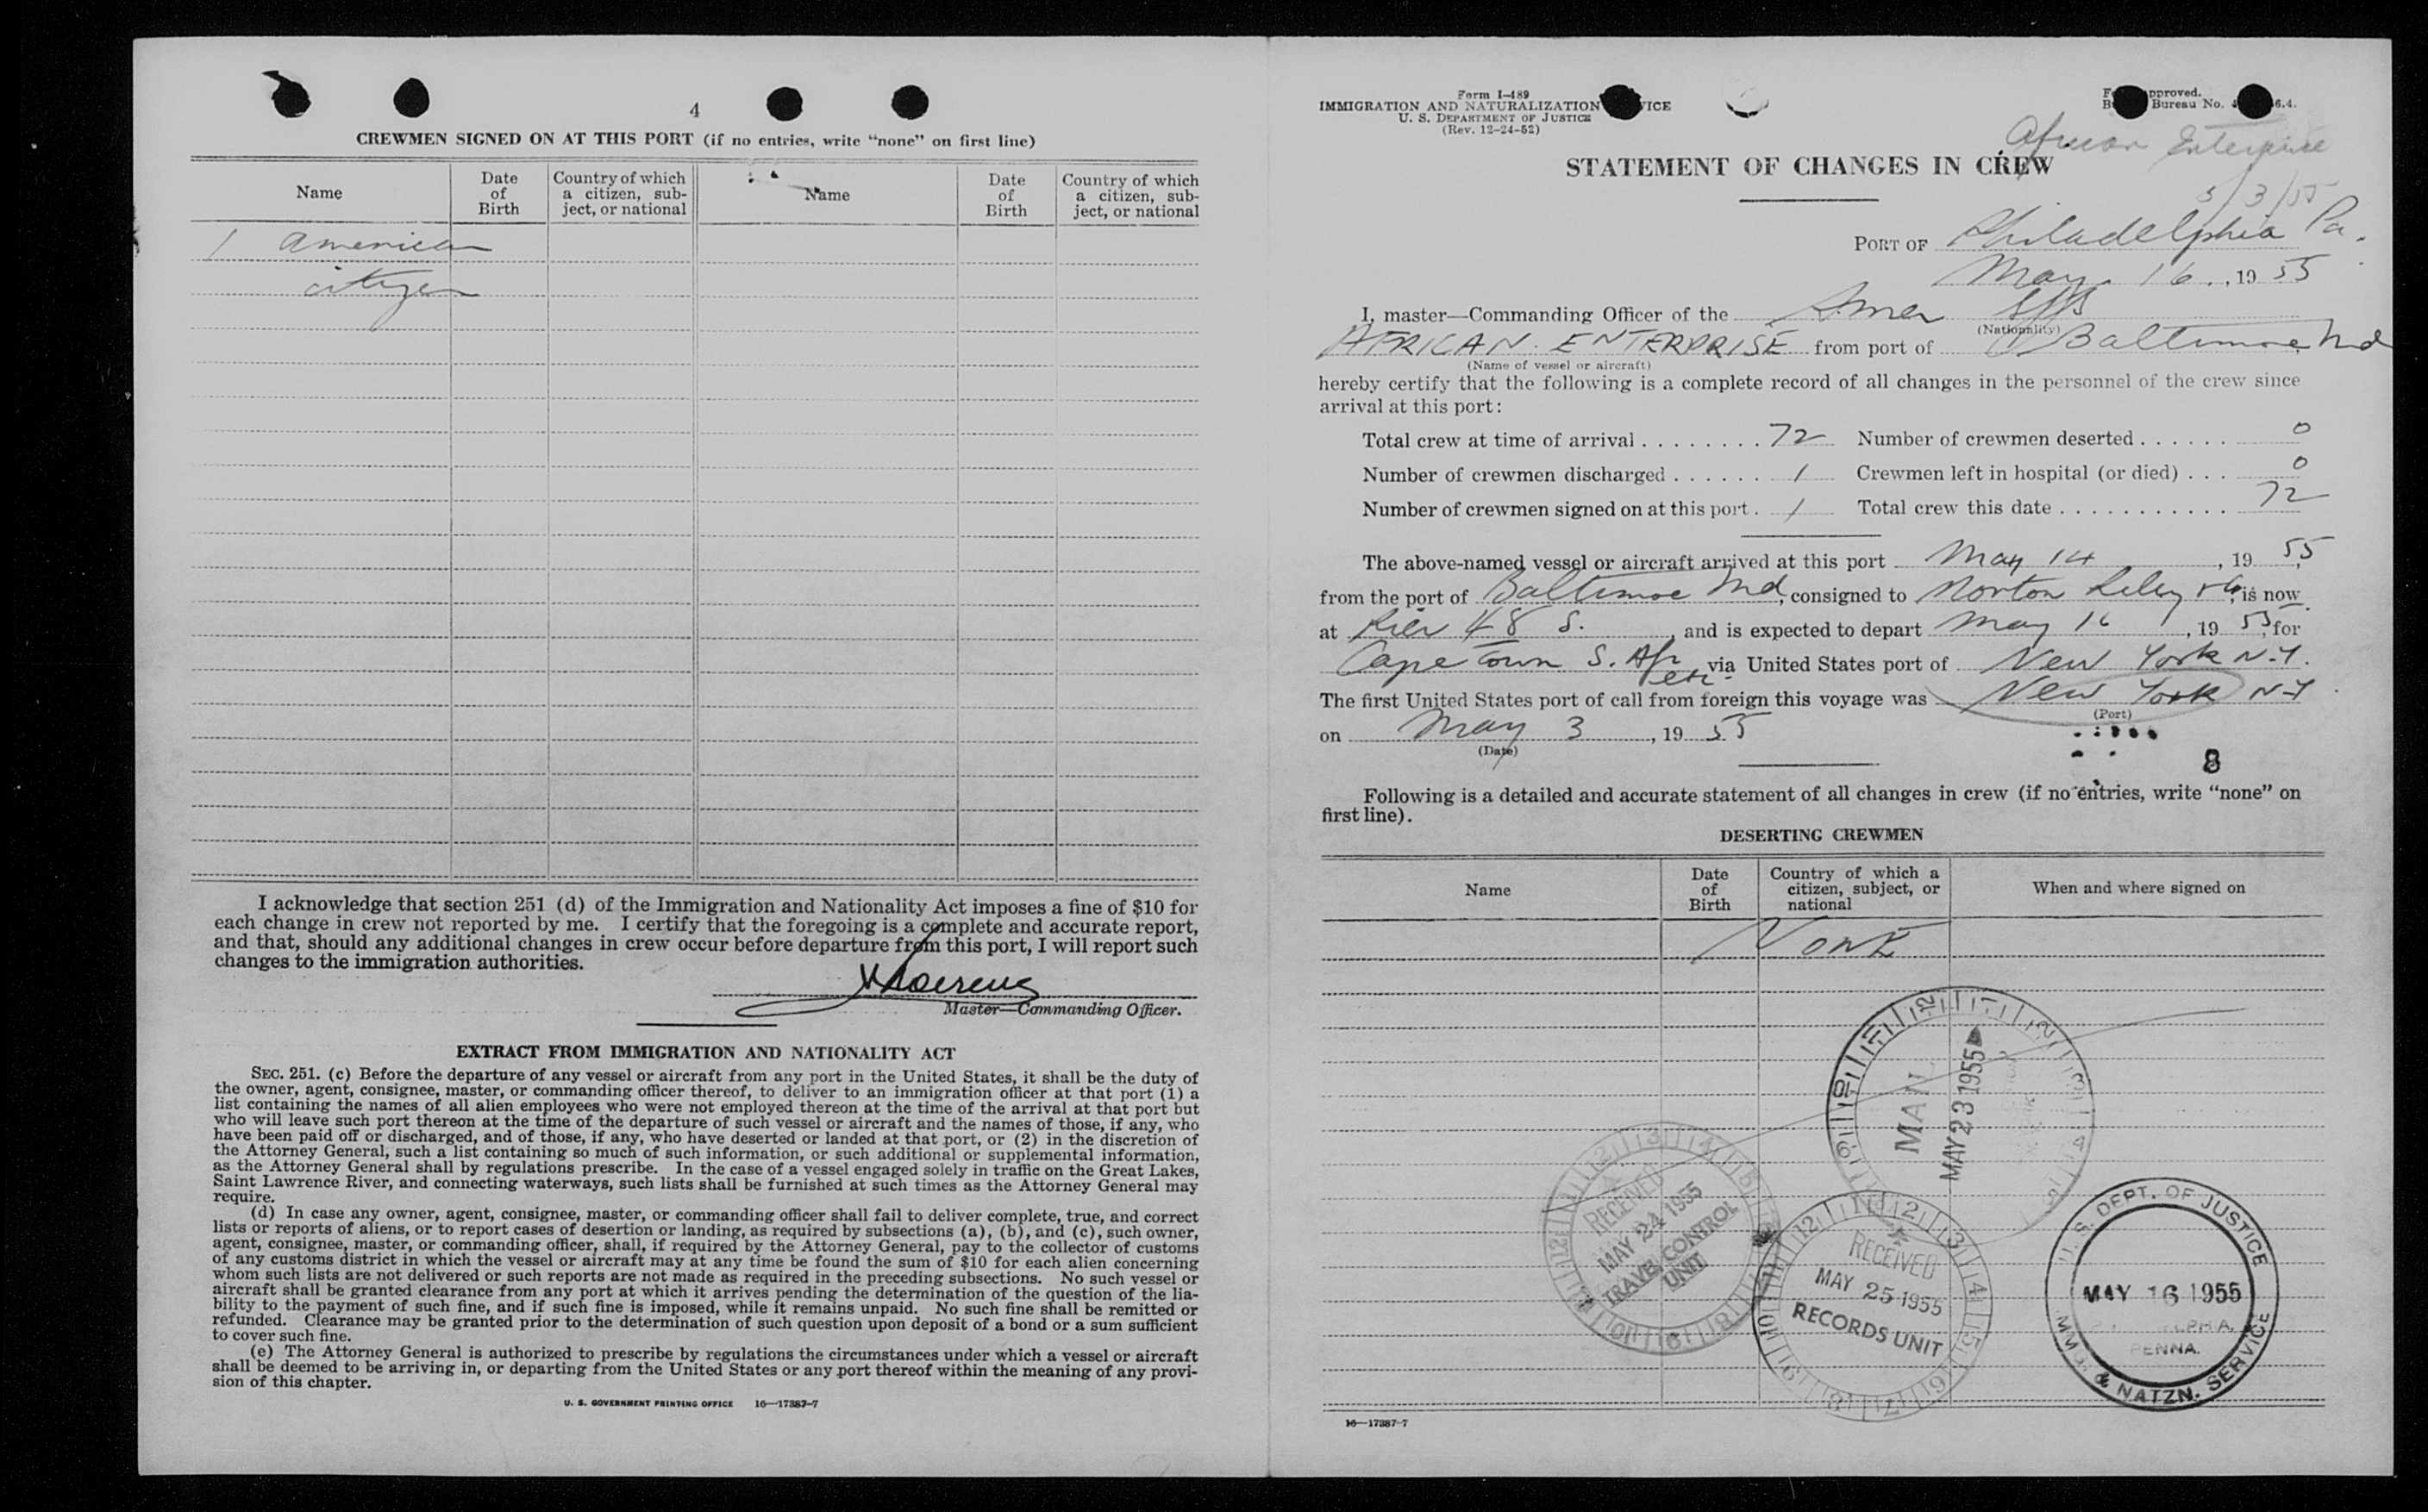 4
CREWMEN SIGNED ON AT THIS PORT (if no entries, write "none" on first line)
Name
Date of Birth
Country of which a citizen, subject, or national
Name
Date of Birth
Country of which a citizen, subject, or national
1 American
citizen
I acknowledge that section 251 (d) of the Immigration and Nationality Act imposes a fine of $10 for
each change in crew not reported by me. I certify that the foregoing is a complete and accurate report,
and that, should any additional changes in crew occur before departure from this port, I will report such
changes to the immigration authorities.
Master—Commanding Officer.
EXTRACT FROM IMMIGRATION AND NATIONALITY ACT
SEC. 251. (c) Before the departure of any vessel or aircraft from any port in the United States, it shall be the duty of
the owner, agent, consignee, master, or commanding officer thereof, to deliver to an immigration officer at that port (1) a
list containing the names of all alien employees who were not employed thereon at the time of the arrival at that port but
who will leave such port thereon at the time of the departure of such vessel or aircraft and the names of those, if any, who
have been paid off or discharged, and of those, if any, who have deserted or landed at that port, or (2) in the discretion of
the Attorney General, such a list containing so much of such information, or such additional or supplemental information,
as the Attorney General shall by regulations prescribe. In the case of a vessel engaged solely in traffic on the Great Lakes,
Saint Lawrence River, and connecting waterways, such lists shall be furnished at such times as the Attorney General may
require.
(d) In case any owner, agent, consignee, master, or commanding officer shall fail to deliver complete, true, and correct
lists or reports of aliens, or to report cases of desertion or landing, as required by subsections (a), (b), and (c), such owner,
agent, consignee, master, or commanding officer, shall, if required by the Attorney General, pay to the collector of customs
of any customs district in which the vessel or aircraft may at any time be found the sum of $10 for each alien concerning
whom such lists are not delivered or such reports are not made as required in the preceding subsections. No such vessel or
aircraft shall be granted clearance from any port at which it arrives pending the determination of the question of the lia-
bility to the payment of such fine, and if such fine is imposed, while it remains unpaid. No such fine shall be remitted or
refunded. Clearance may be granted prior to the determination of such question upon deposit of a bond or a sum sufficient
to cover such fine.
(e) The Attorney General is authorized to prescribe by regulations the circumstances under which a vessel or aircraft
shall be deemed to be arriving in, or departing from the United States or any port thereof within the meaning of any provi-
sion of this chapter.
U. S. GOVERNMENT PRINTING OFFICE 16—17387-7
Form I-489
IMMIGRATION AND NATURALIZATION VICE
U. S. DEPARTMENT OF JUSTICE
(Rev. 12-24-52)
pproved.
Bureau No. 6.4.
African Enterprise
5/3/55
STATEMENT OF CHANGES IN CREW
PORT OF Philadelphia Pa.
May 16, 1955
I, master—Commanding Officer of the Amer SS
(Nationality)
AFRICAN ENTERPRISE from port of Baltimore Md
(Name of vessel or aircraft)
hereby certify that the following is a complete record of all changes in the personnel of the crew since
arrival at this port:
Total crew at time of arrival . . . . . . . . 72 Number of crewmen deserted . . . . . . 0
Number of crewmen discharged . . . . . . 1 Crewmen left in hospital (or died) . . . 0
Number of crewmen signed on at this port . 1 Total crew this date . . . . . . . . . . . 72
The above-named vessel or aircraft arrived at this port May 14, 1955,
from the port of Baltimore Md, consigned to Norton Lilly & Co, is now
at Pier 48 S., and is expected to depart May 16, 1955, for
Cape Town S. Afr etc. via United States port of New York N.Y.
The first United States port of call from foreign this voyage was New York NY
(Port)
on May 3, 1955
(Date)
8
Following is a detailed and accurate statement of all changes in crew (if no entries, write "none" on
first line).
DESERTING CREWMEN
Name
Date of Birth
Country of which a citizen, subject, or national
When and where signed on
NONE
MAN
MAY 23 1955
RECEIVED
MAY 24 1955
TRAVEL CONTROL
UNIT
RECEIVED
MAY 25 1955
RECORDS UNIT
U. S. DEPT. OF JUSTICE
MAY 16 1955
PENNA.
& NATZN. SERVICE
16—17387-7